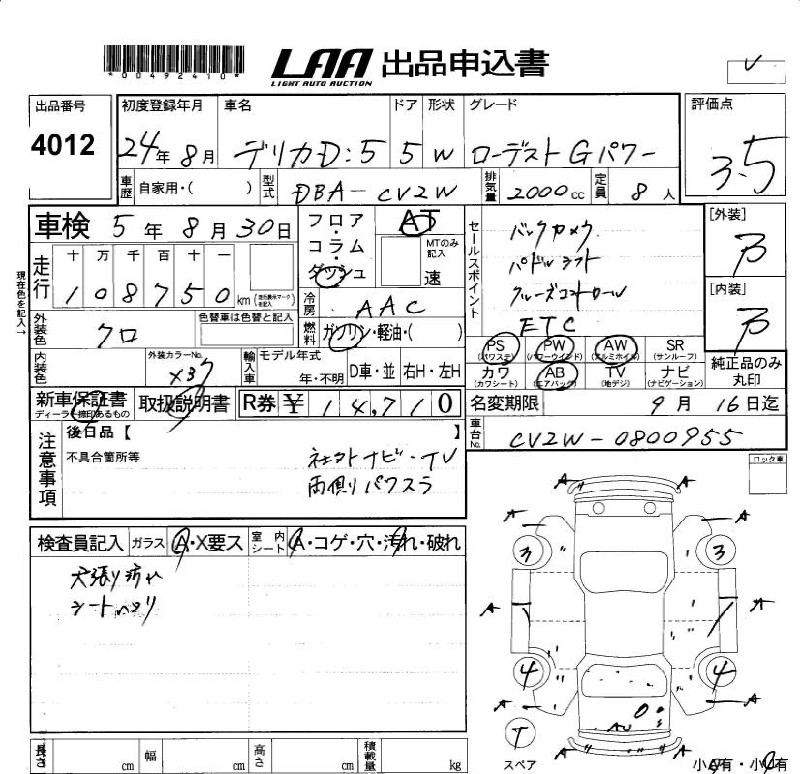 *00492410*
LAA 出品申込書
LIGHT AUTO AUCTION
出品番号 4012
初度登録年月 24年8月
車名 デリカD:5
ドア 5
形状 W
グレード ローデスト Gパワー
評価点 3.5
車歴 自家用・( )
型式 DBA-CV2W
排気量 2000cc
定員 8人
車検 5年8月30日
走行 十万千百十一
108750km
現在色を記入→
フロア・コラム・ダッシュ
AT
MTのみ記入 速
冷房 AAC
燃料 ガソリン・軽油・( )
セールスポイント
バックカメラ
パドルシフト
クルーズコントロール
ETC
[外装] B
[内装] B
外装色 クロ
色替車は色替と記入
内装色
外装カラーNo. X37
輸入車 モデル年式 年・不明
D車・並
右H・左H
PS (パワステ)
PW (パワーウインド)
AW (アルミホイル)
SR (サンルーフ)
カワ (カワシート)
AB (エアバック)
TV (地デジ)
ナビ (ナビゲーション)
純正品のみ丸印
新車保証書 ディーラー捺印あるもの
取扱説明書
R券 ¥14,710
名変期限 9月16日迄
車台No. CV2W-0800955
注意事項
後日品【 】
不具合箇所等
ネオクトナビ・TV
両側リパワスラ
ロック車
検査員記入
ガラス A・X要ス
室内シート A・コゲ・穴・汚れ・破れ
天張り汚れ
シートヘタリ
A A
A A
3 3
A A
4 4
A A
AU
T
スペア
A A
小A有・小U有
長さ cm
幅 cm
高さ cm
積載量 kg